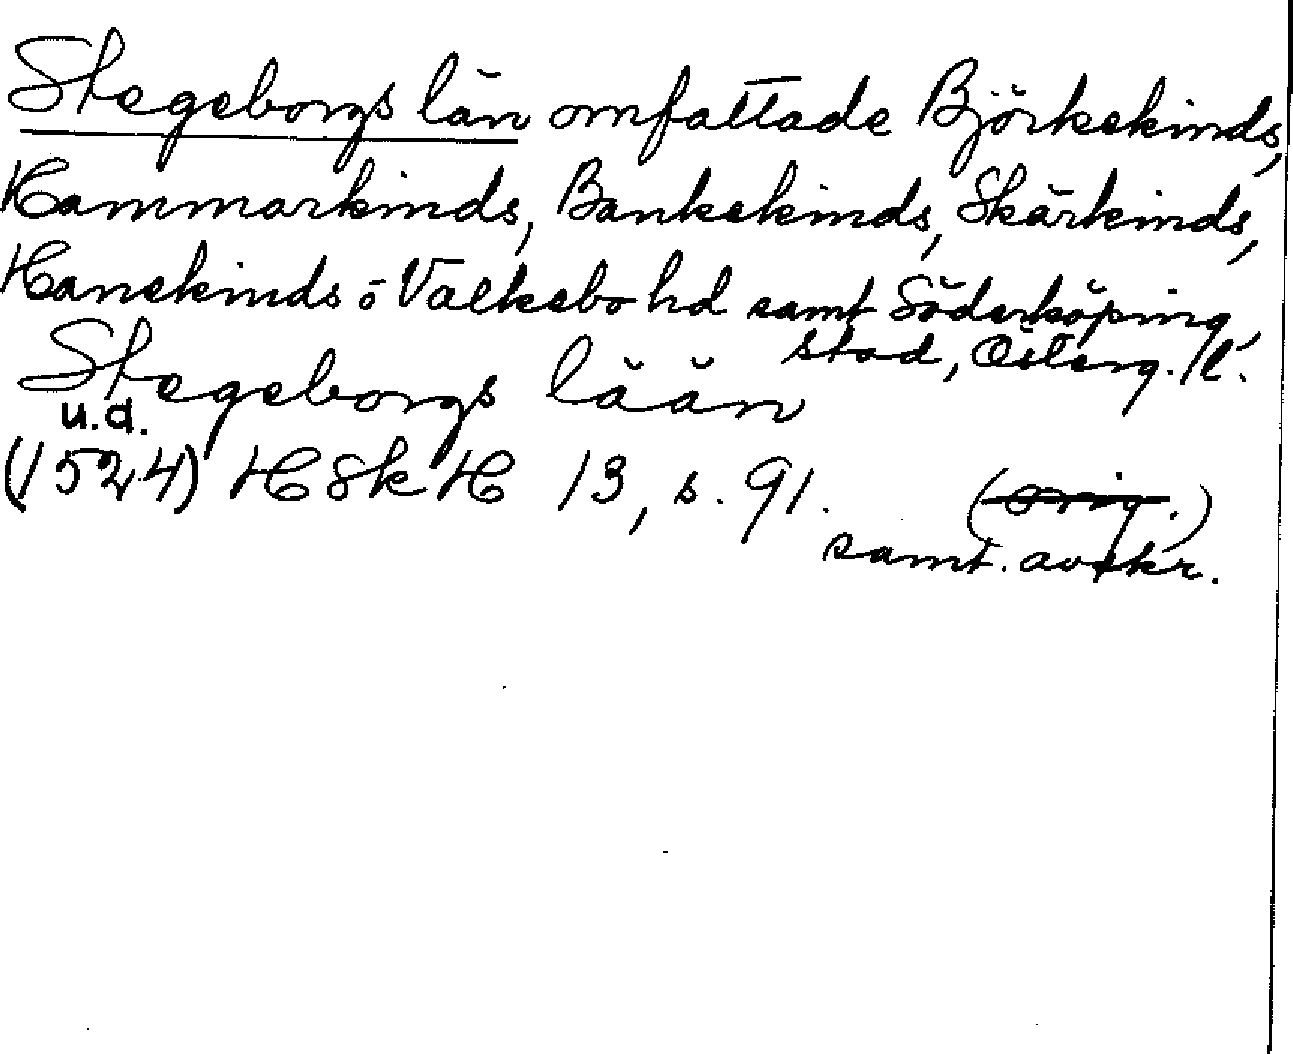 Stegeborgs län omfattade Björkekinds,
Hammarkinds, Bankekinds, Skärkinds,
Hanekinds o Valkebo hd samt Söderköping,
stad, Österg. l.
Stegeborgs lään
u.d.
(1524) HSkH 13, s. 91. (orig.)
samt. avskr.